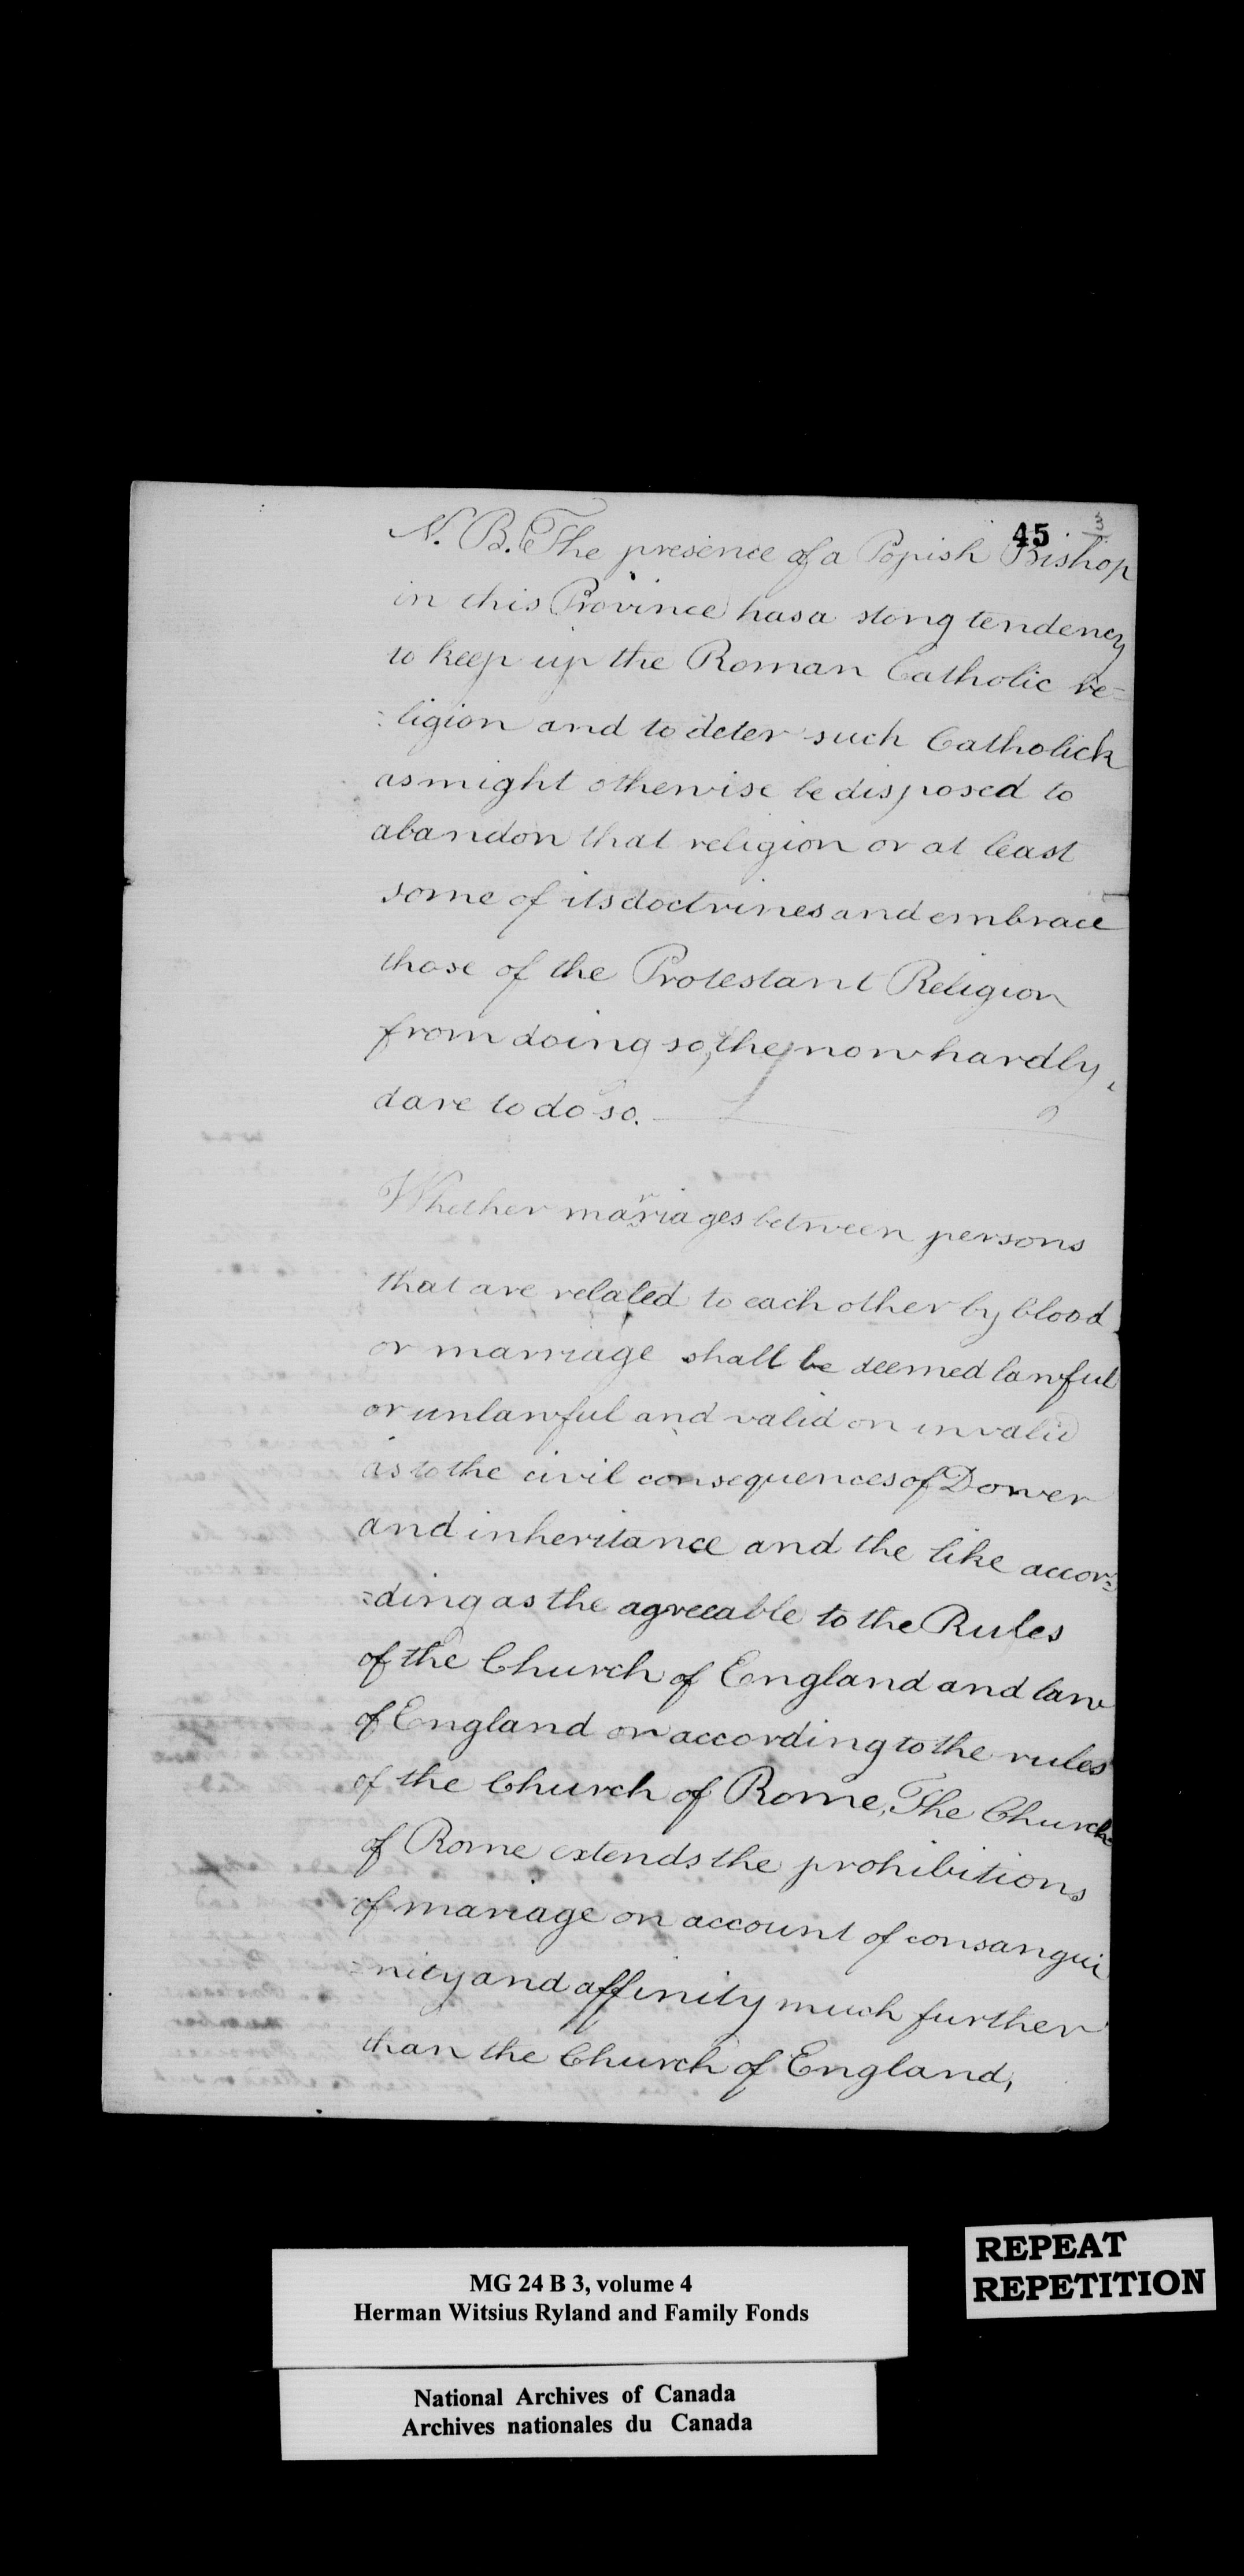 45
3
N. B. The presence of a Popish Bishop
in this Province has a stong tendency
to keep up the Roman Catholic re=
=ligion and to deter such Catholick
as might otherwise be disposed to
abandon that religion or at least
some of its doctrines and embrace
those of the Protestant Religion
from doing so, they now hardly,
dare to do so.
Whether marriages between persons
that are related to each other by blood
or marriage shall be deemed lawful
or unlawful and valid or invalid
as to the civil consequences of Dower
and inheritance and the like accor=
=ding as the agreeable to the Rules
of the Church of England and law
of England or according to the rules
of the Church of Rome, The Church
of Rome extends the prohibitions
of mariage on account of consangui
=nity and affinity much further
than the Church of England,
REPEAT
REPETITION
MG 24 B 3, volume 4
Herman Witsius Ryland and Family Fonds
National Archives of Canada
Archives nationales du Canada